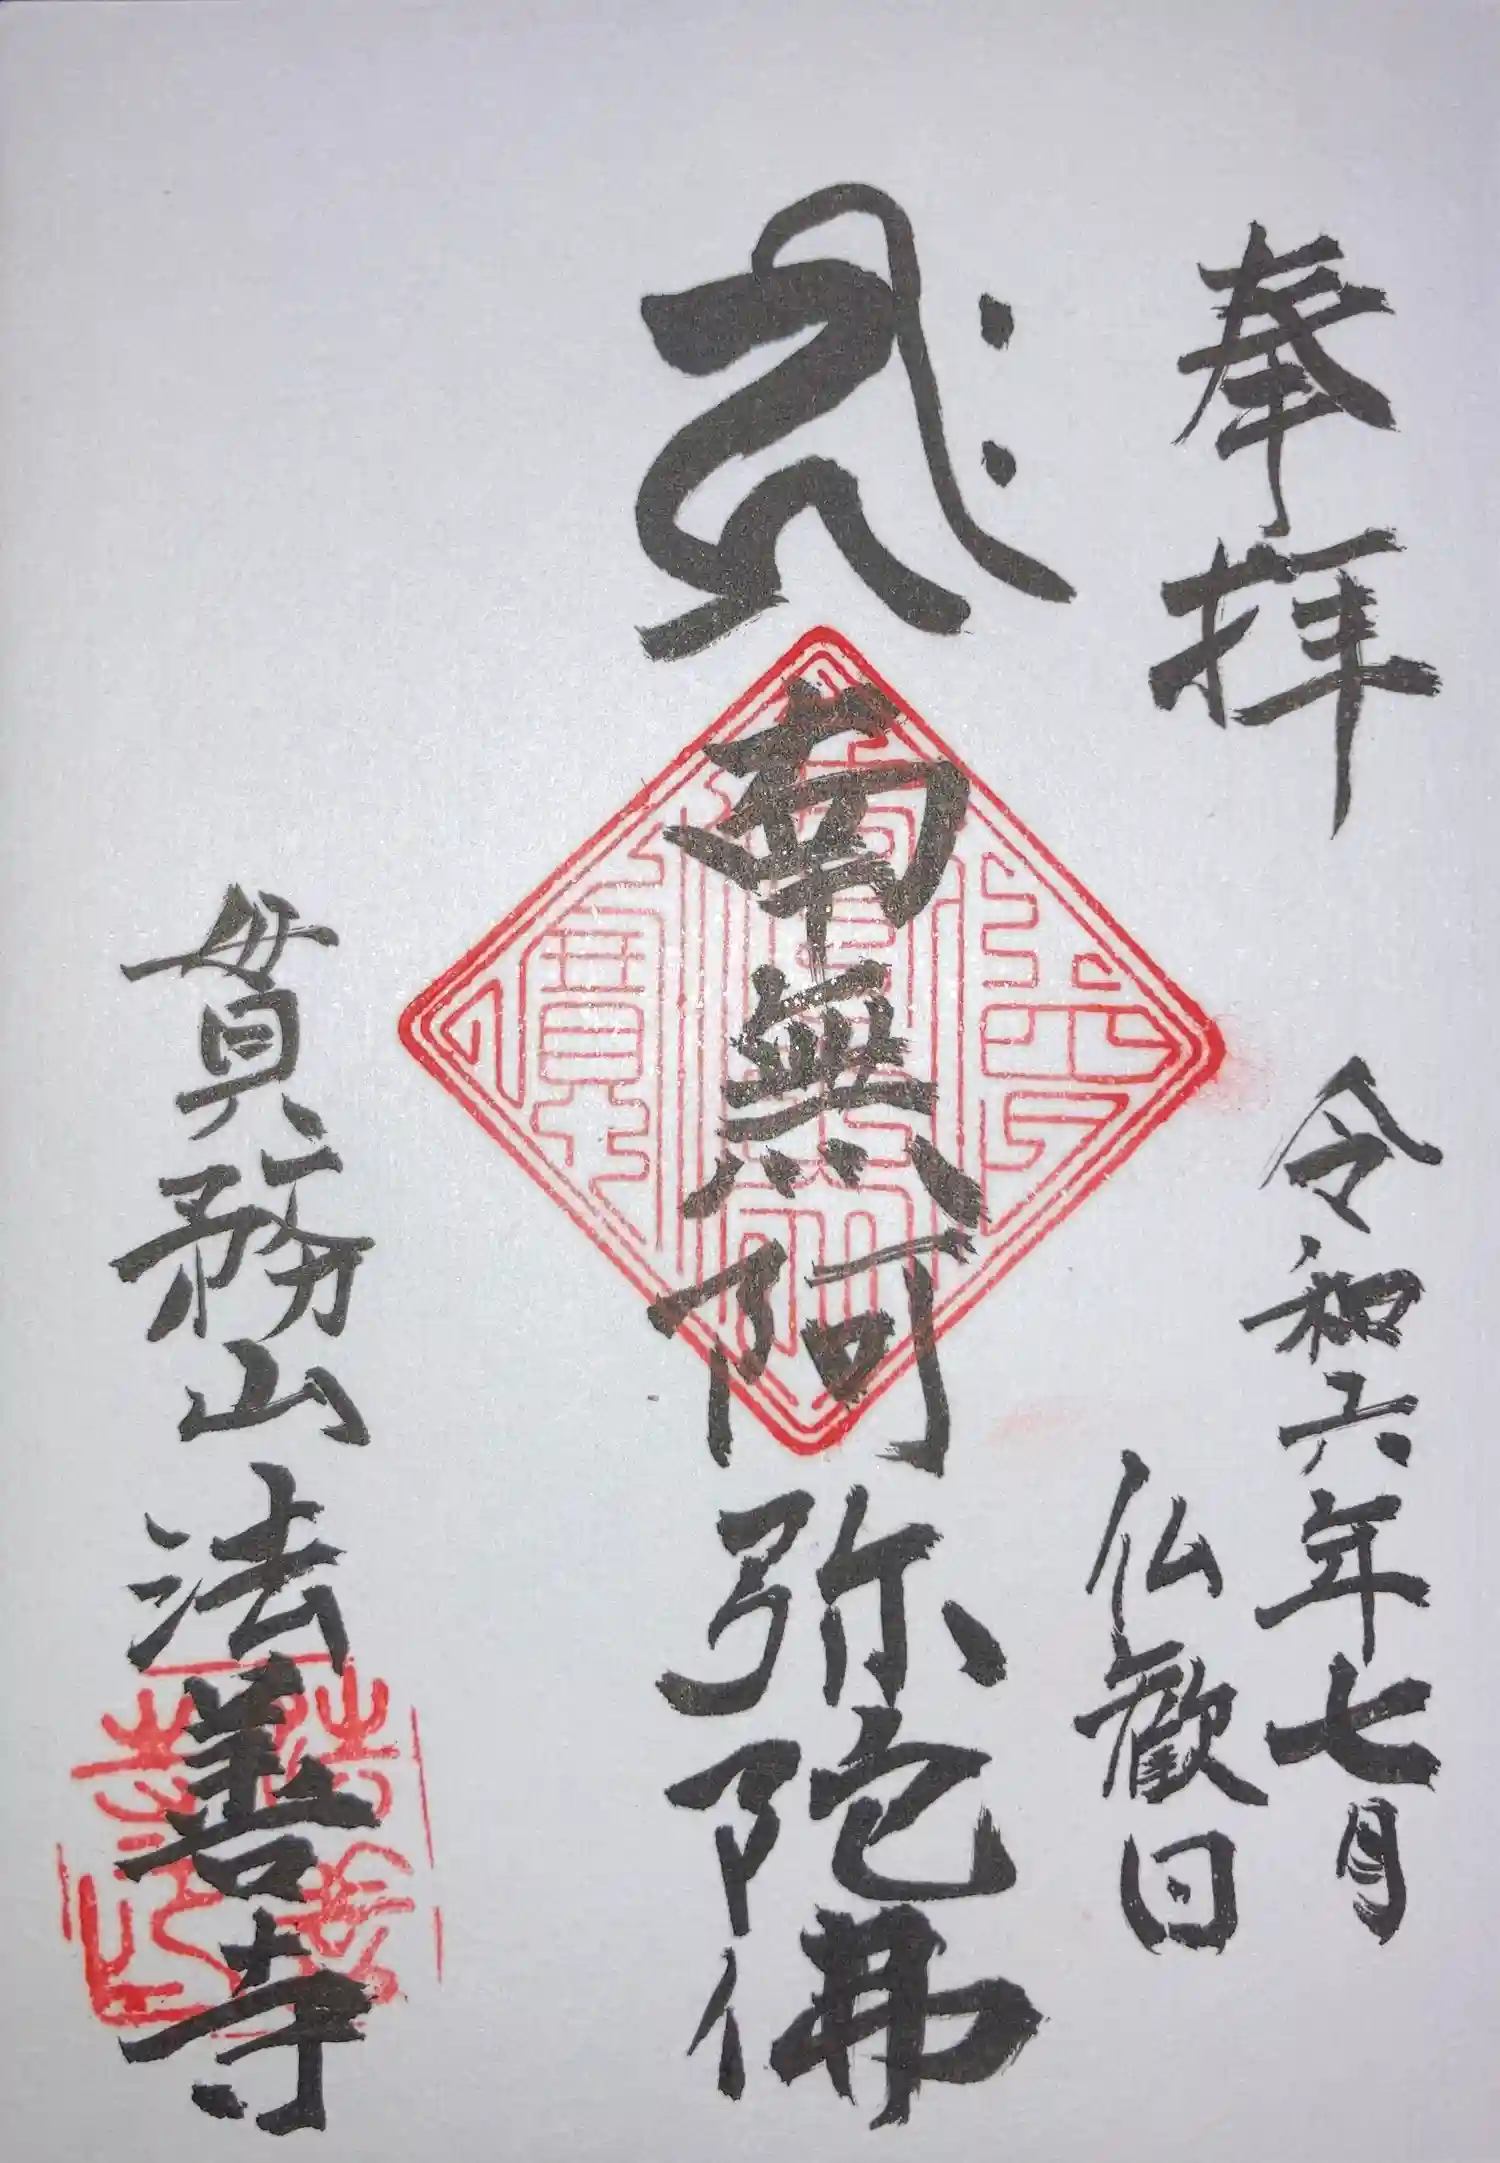 奉拝
令和六年七月
仏歓日
南無阿弥陀佛
貫務山 法善寺